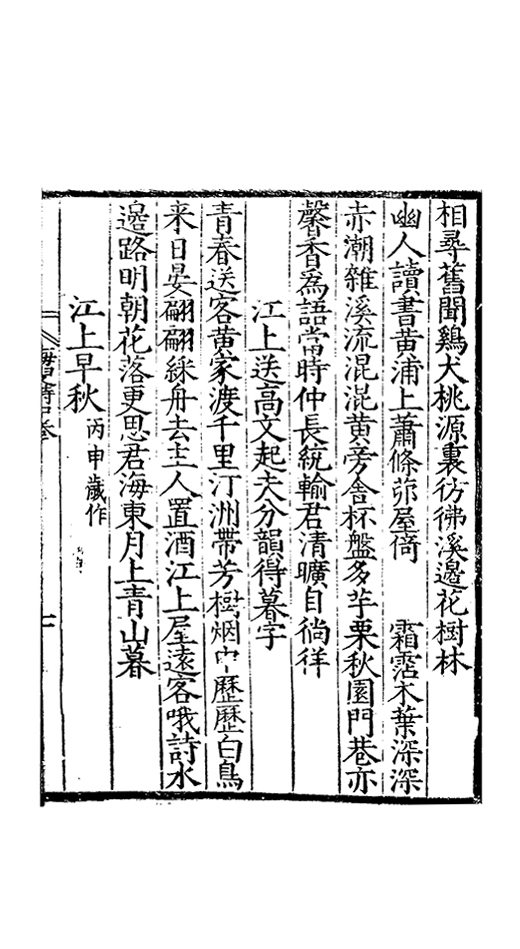 相尋舊聞鷄犬桃源裏彷彿溪邊花樹林
幽人讀書黄浦上蕭條茆屋倚 霜霑木葉深深
赤潮雜溪流混混黄旁舍杯盤多芋栗秋園門巷亦
馨香爲語當時仲長統輸君清曠自徜徉
江上送高文起夫分韻得暮字
青春送客黄家渡千里汀洲帶芳樹烟中歷歷白鳥
来日晏翩翩綵舟去主人置酒江上屋遠客哦詩水
邊路明朝花落更思君海東月上青山暮
江上早秋 丙申歲作